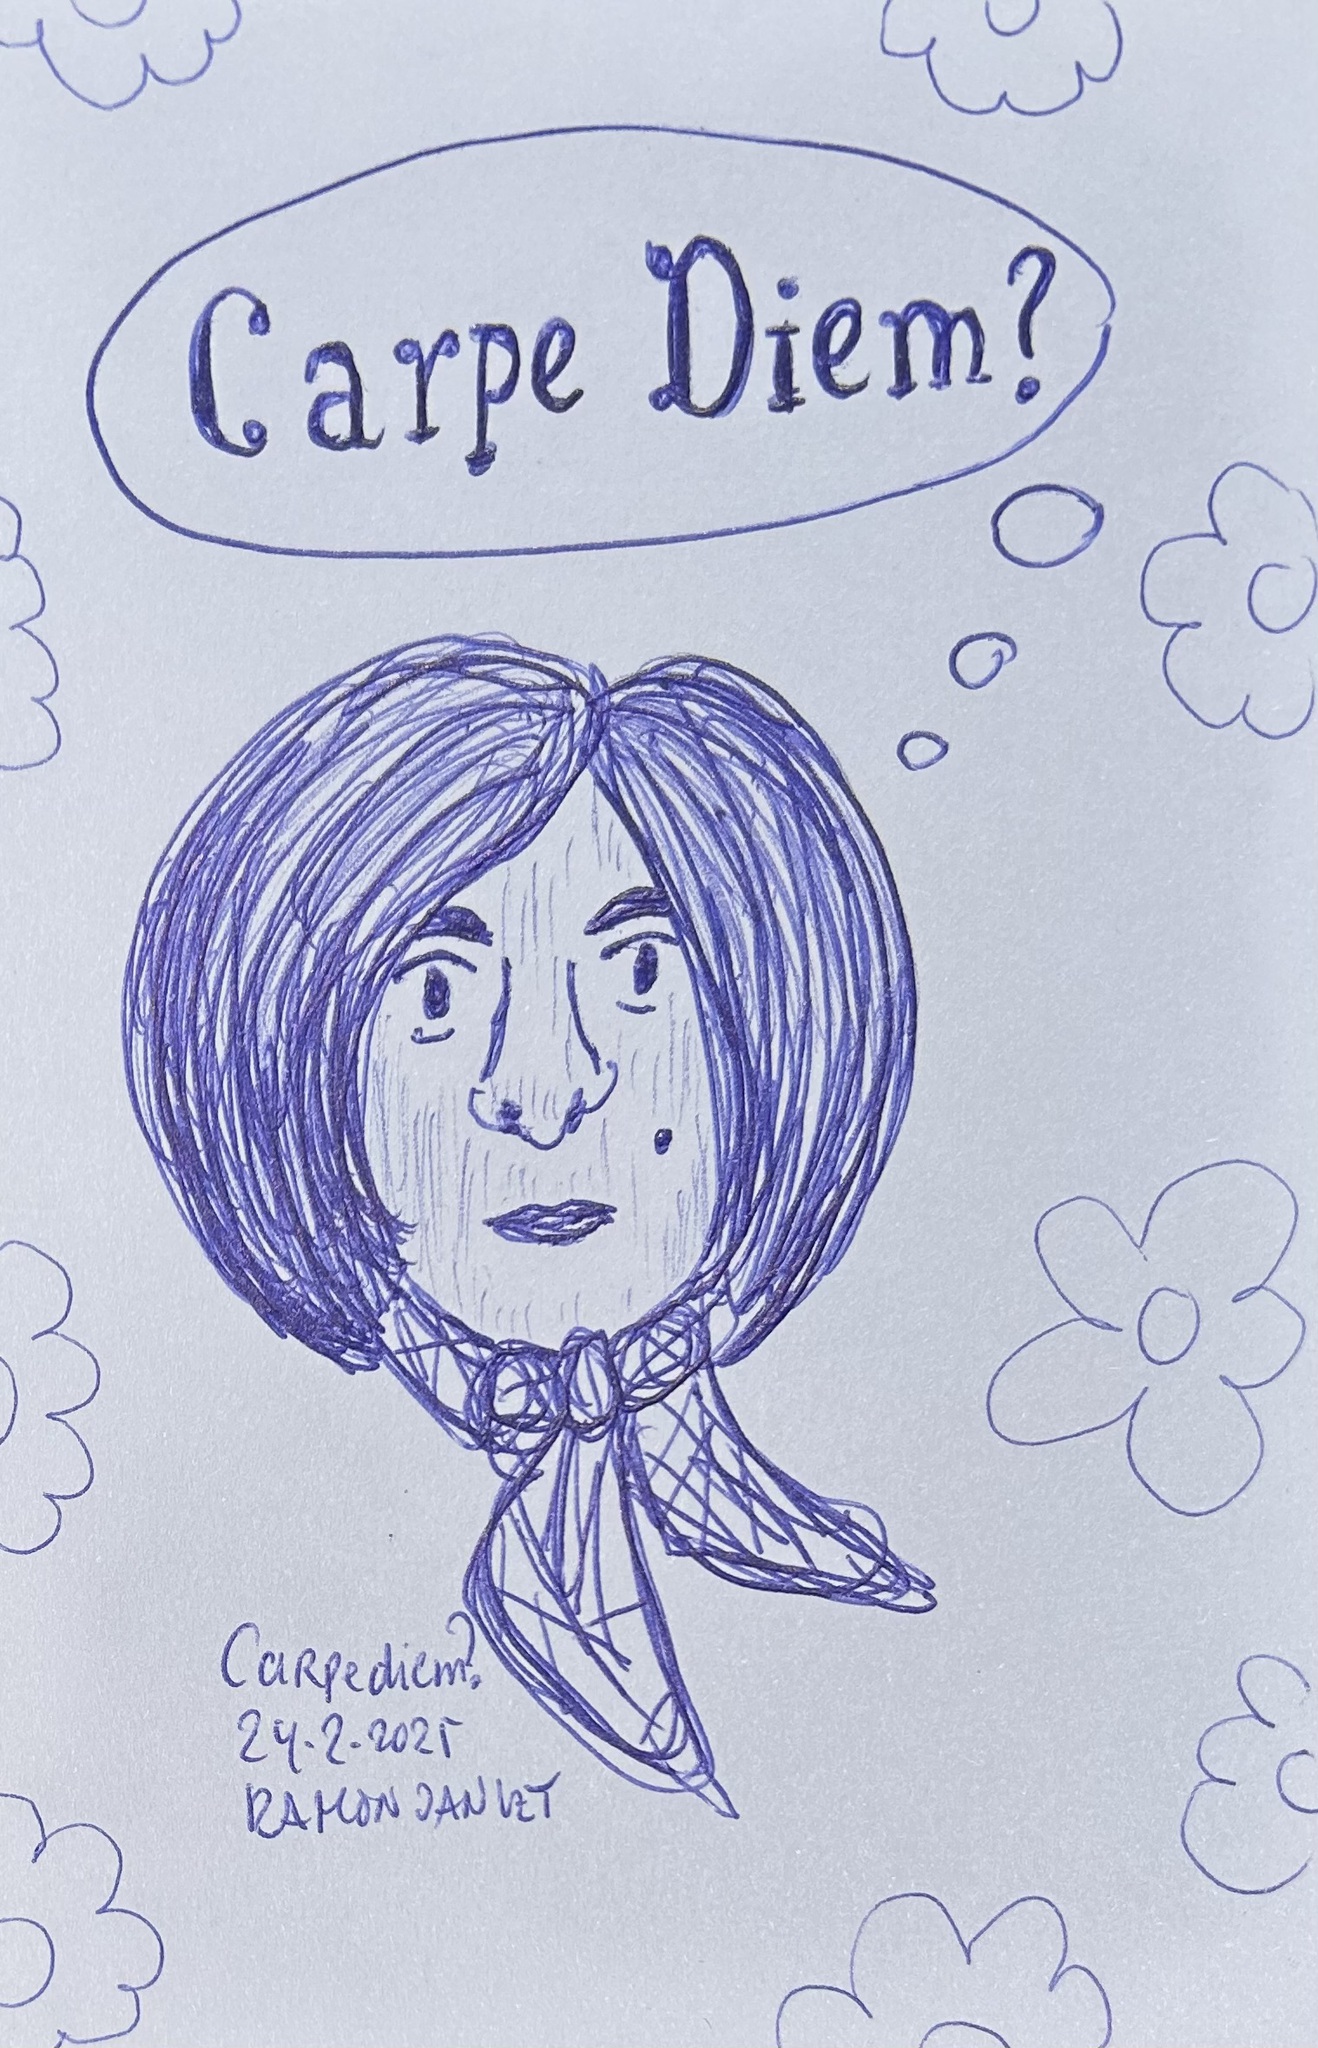 Carpe Diem?
Carpediem?
24.2.2025
RAMON